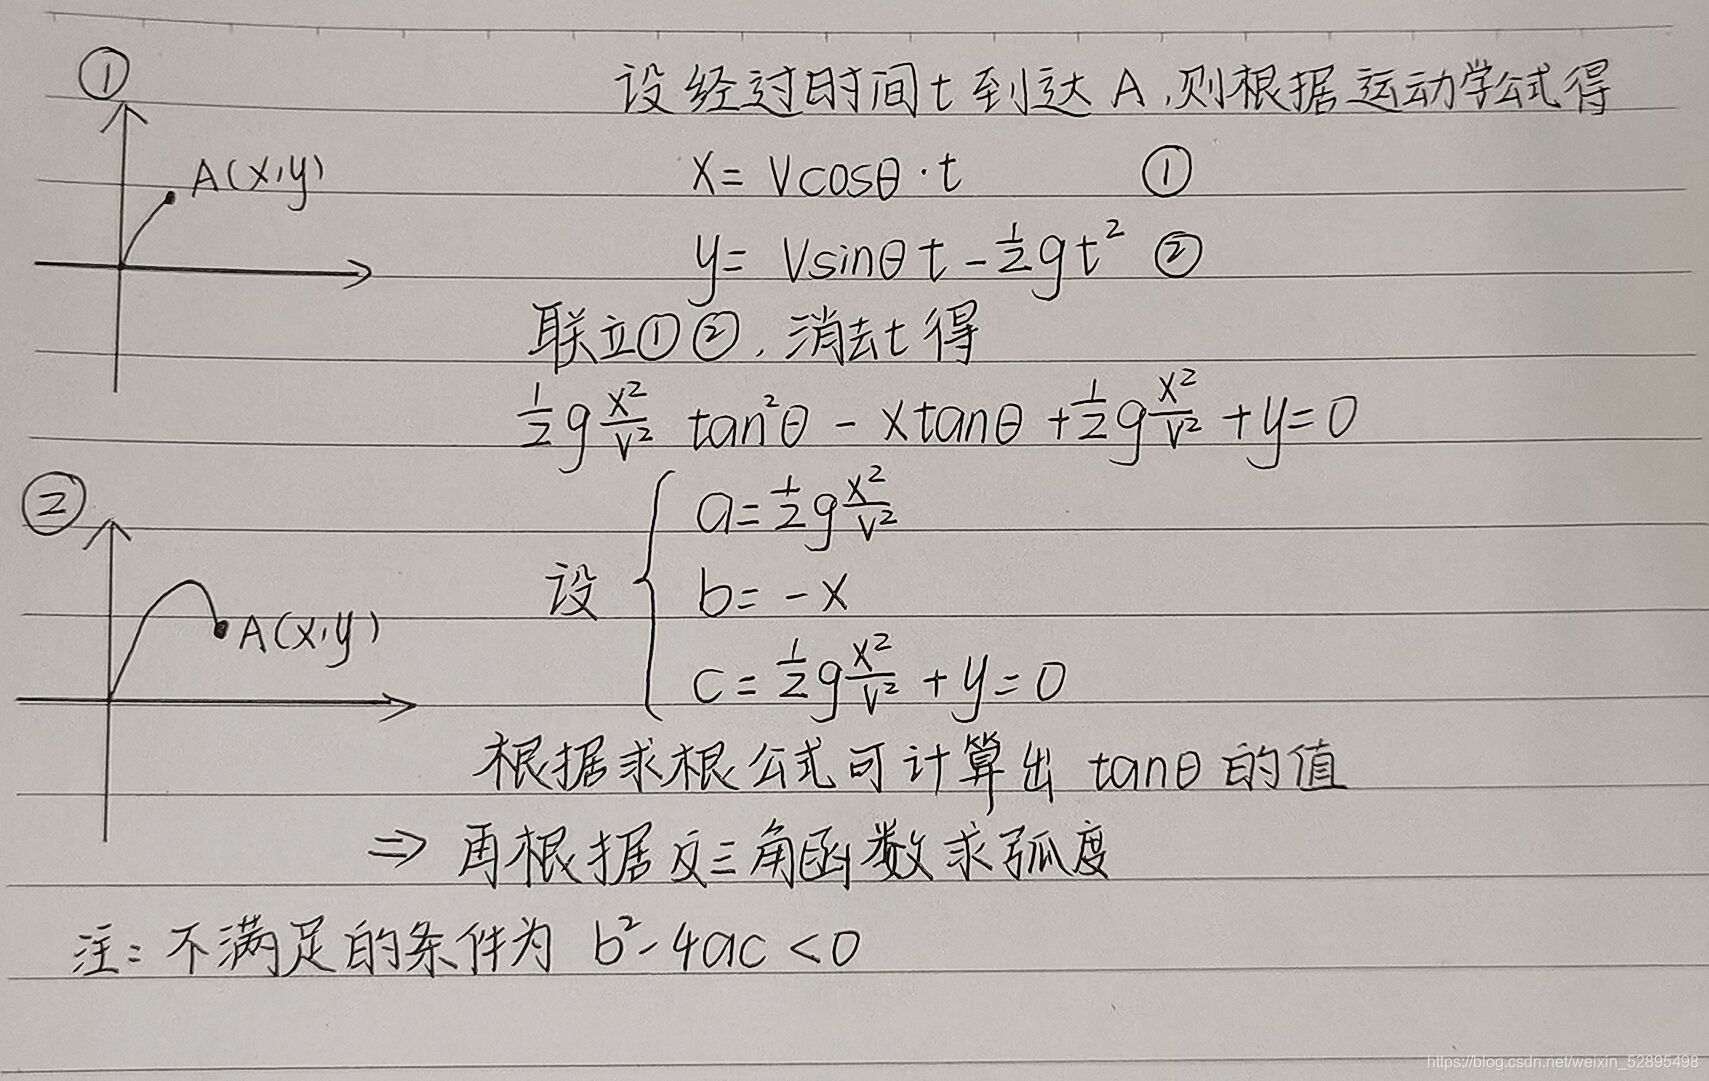 ①
设经过时间t到达A,则根据运动学公式得
A(x,y)
x= Vcosθ·t ①
y= Vsinθt-½gt² ②
联立①②,消去t得
½g x²/V² tan²θ - xtanθ + ½g x²/V² + y=0
②
A(x,y)
设
a=½g x²/V²
b=-x
c=½g x²/V² + y=0
根据求根公式可计算出 tanθ的值
⇒ 再根据反三角函数求弧度
注:不满足的条件为 b²-4ac<0
https://blog.csdn.net/weixin_52895498